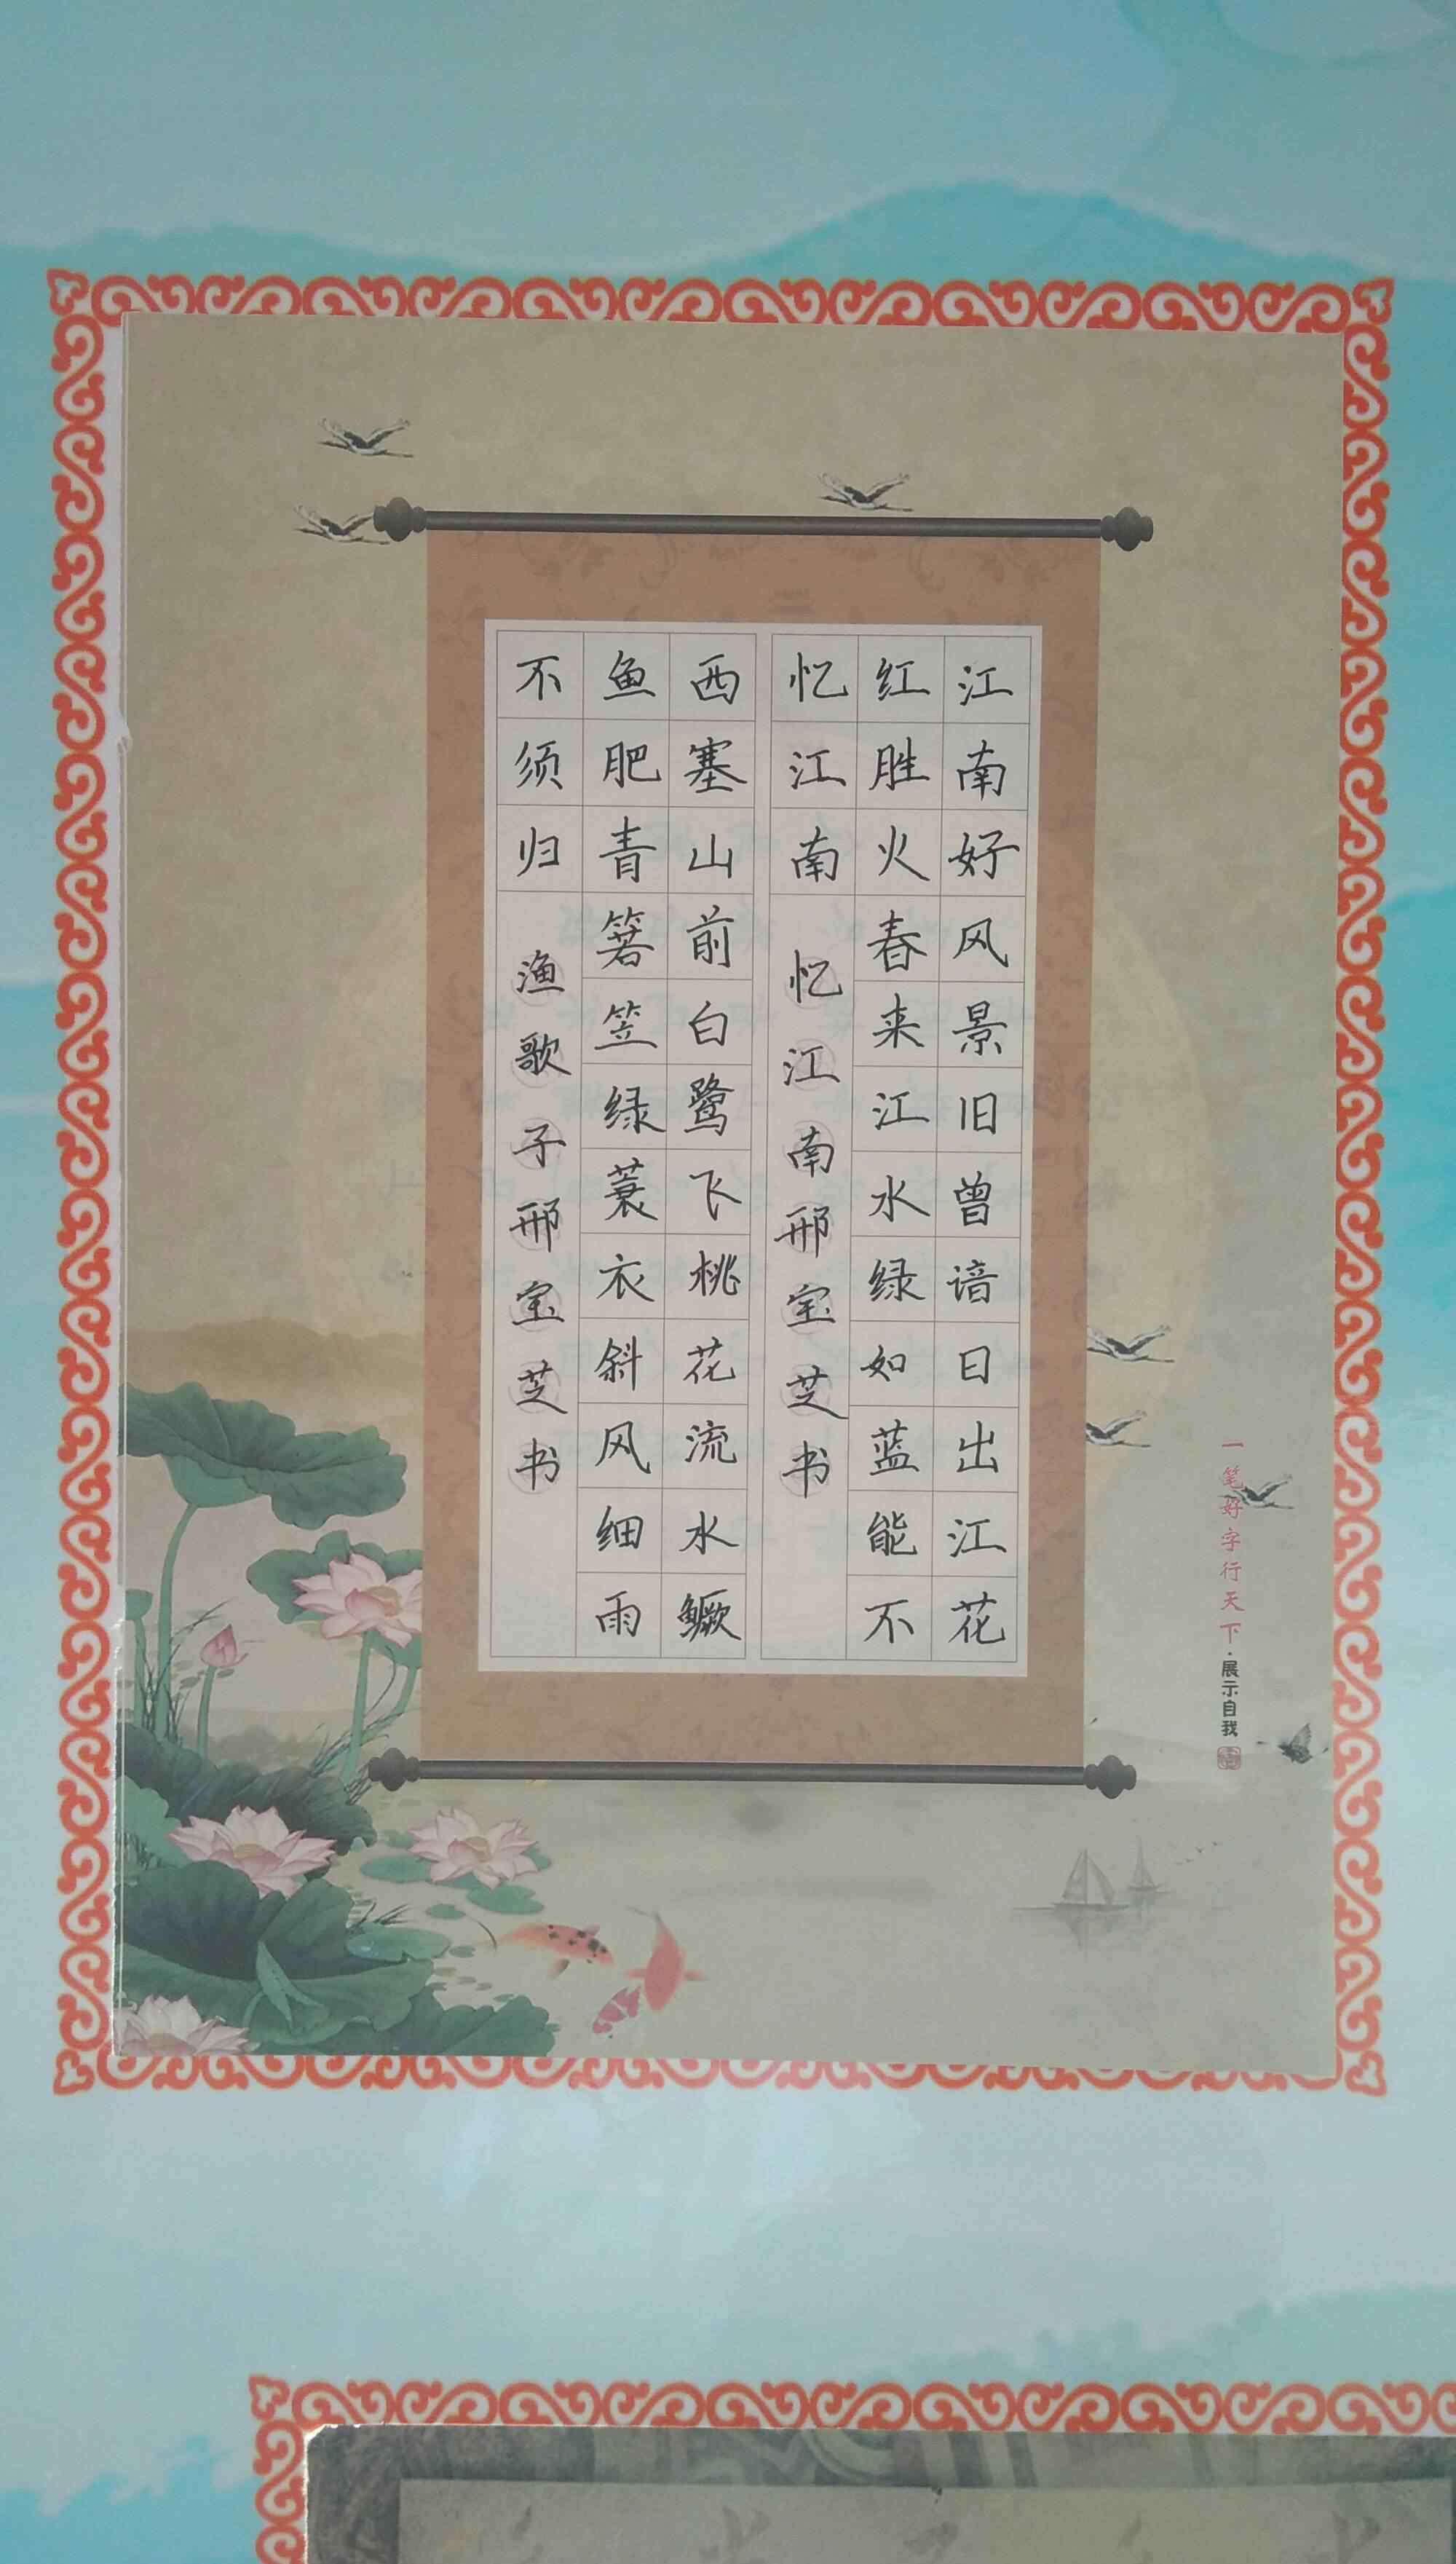 江南好风景旧曾谙日出江花
红胜火春来江水绿如蓝能不
忆江南 忆江南邢宝芝书
西塞山前白鹭飞桃花流水鳜
鱼肥青箬笠绿蓑衣斜风细雨
不须归 渔歌子邢宝芝书
一笔好字行天下·展示自我